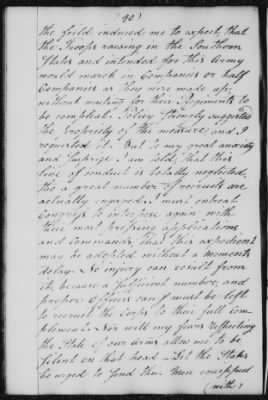 (90)
the field induced me to expect, that
the Troops raising in the Southern
States and intended for this Army
would march in Companies or half
Companies as they were made up,
without waiting for their Regiments to
be compleat. Policy strongly suggested
the propriety of the measure, and I
requested it. But to my great anxiety
and surprize I am told, that this
line of conduct is totally neglected,
tho' a great number of recruits are
actually engaged. I must entreat
Congress to interpose again with
their most pressing applications
and commands, that this expedient
may be adopted without a moments
delay. No injury can result from
it, because a sufficient number, and
proper Officers can & must be left
to recruit the Corps to their full com-
plement. Nor will my fears respecting
the State of our arms allow me to be
silent on that head – Let the States
be urged to send their Men equipped
(with)